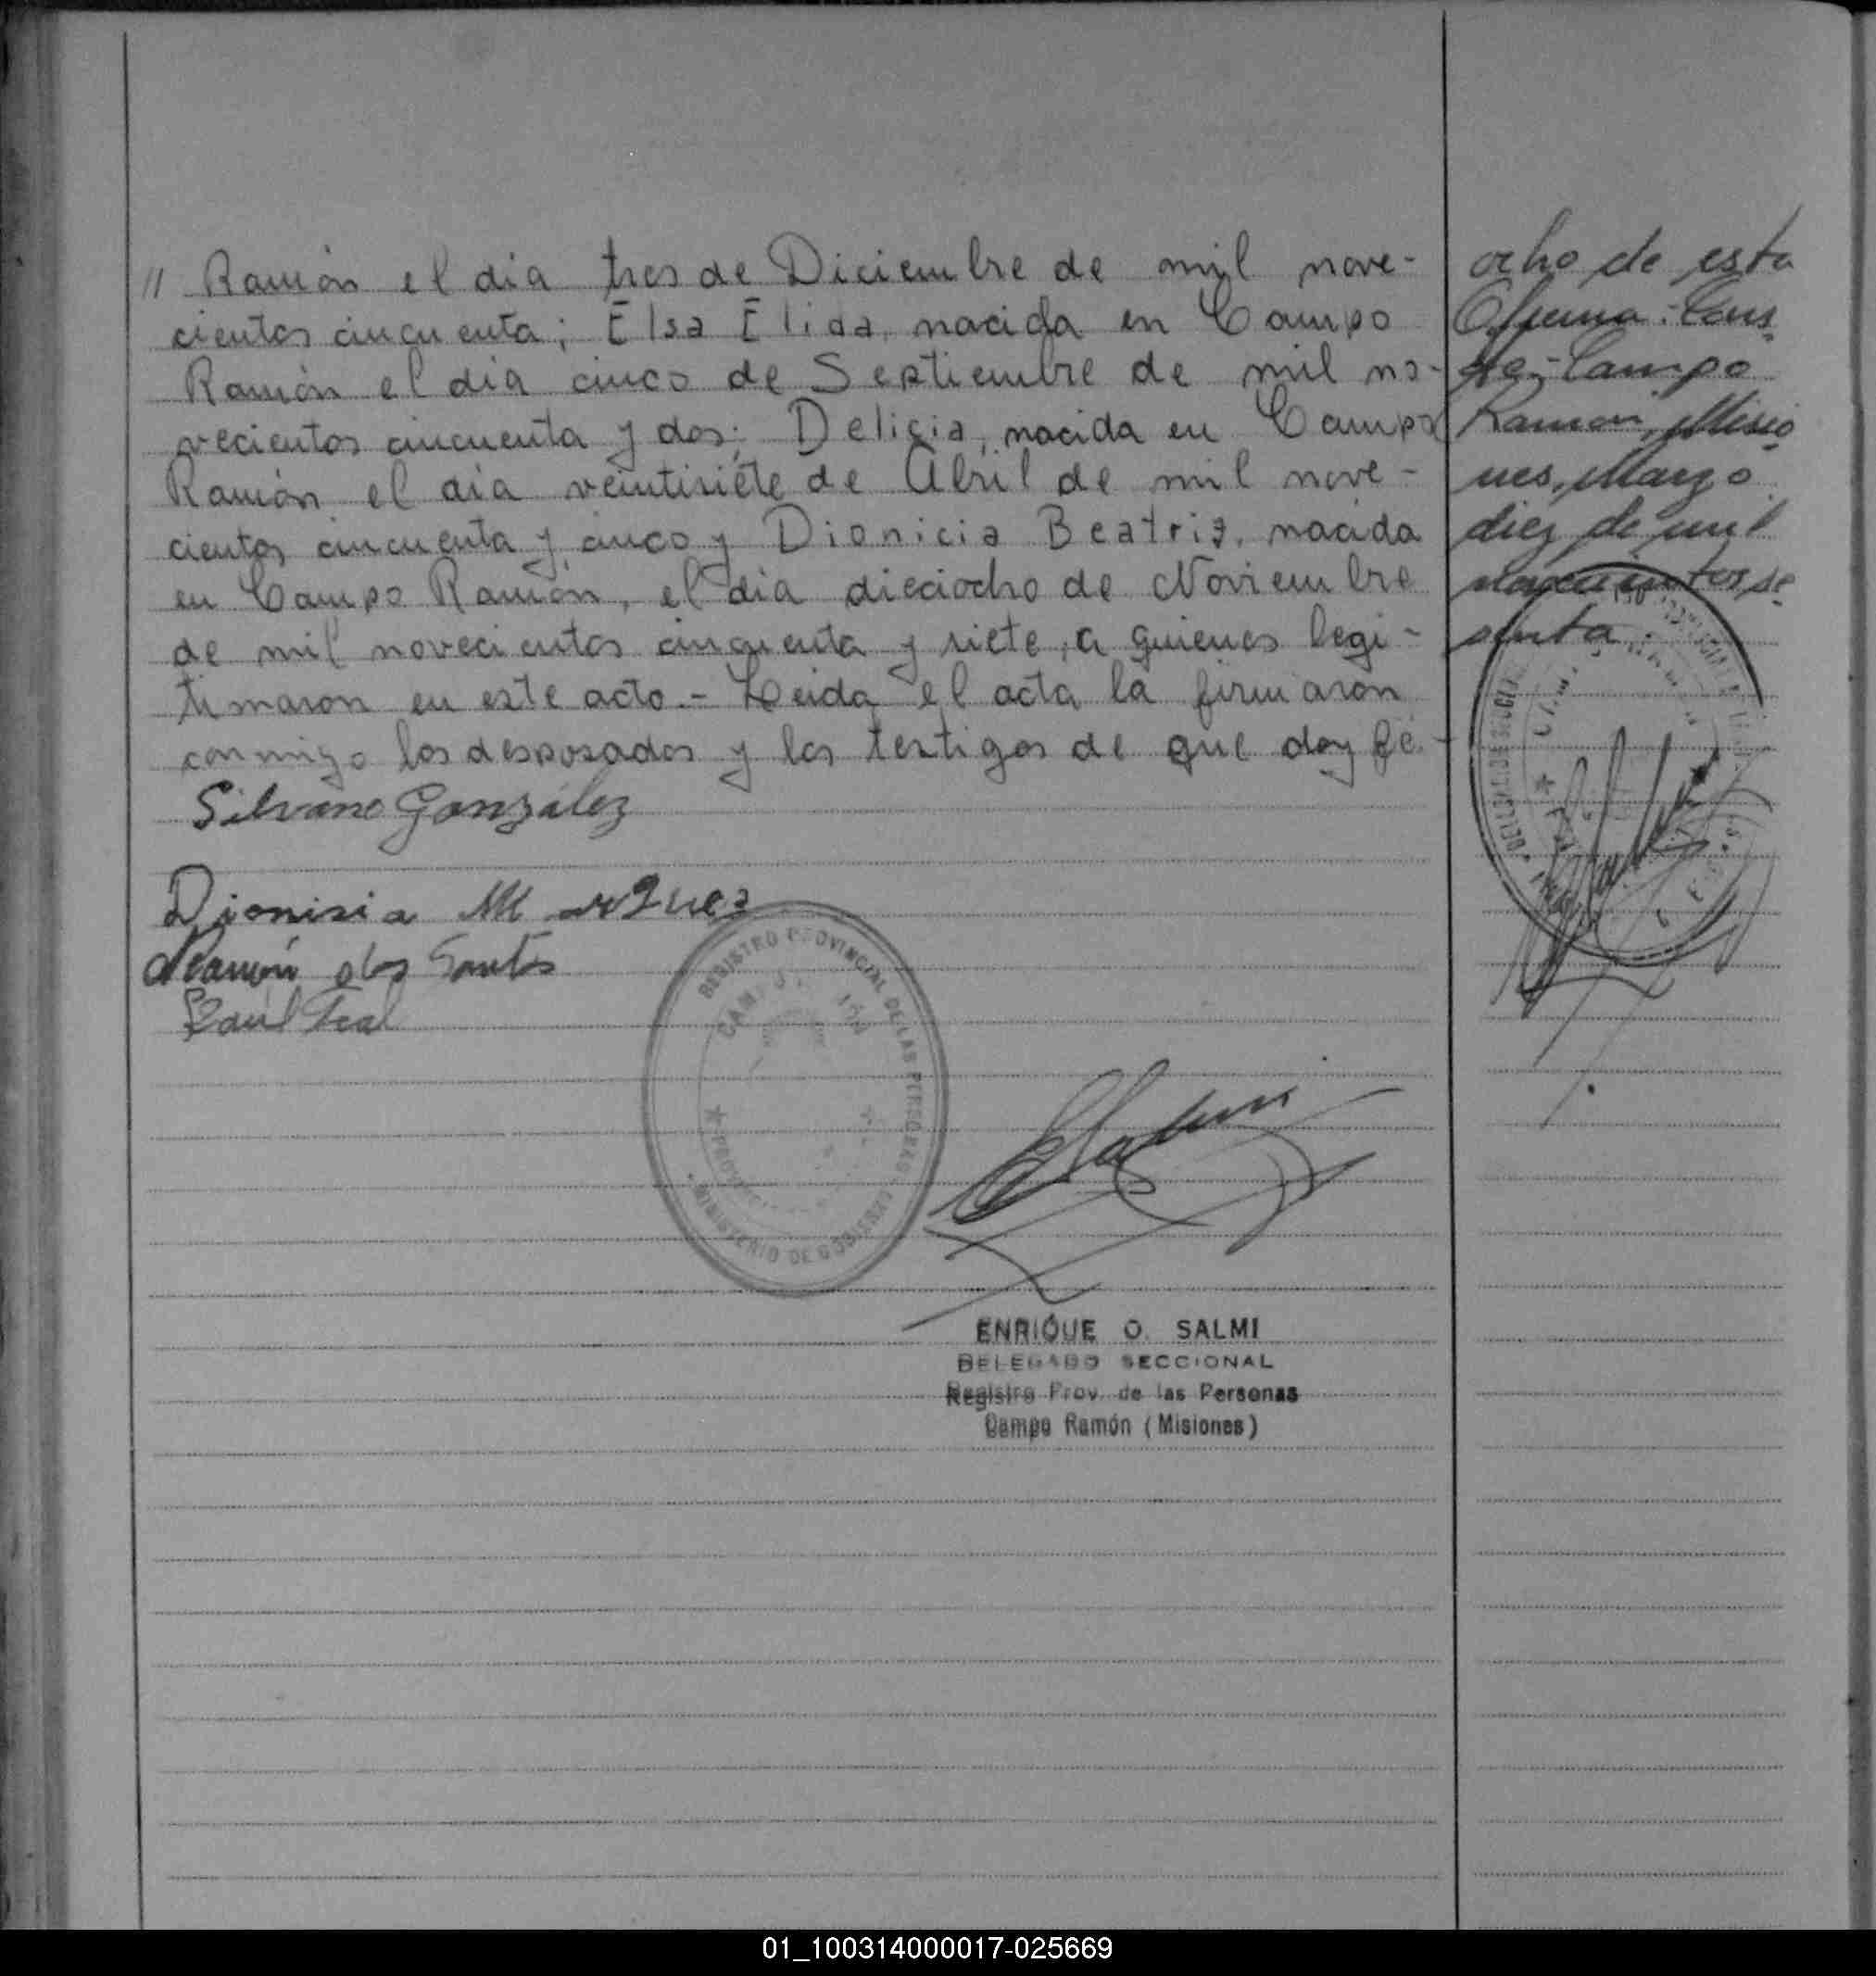 // Ramón el día tres de Diciembre de mil nove-
cientos cincuenta; Elsa Elida, nacida en Campo
Ramón el día cinco de Septiembre de mil no-
vecientos cincuenta y dos; Delicia, nacida en Campo
Ramón el día veintisiete de Abril de mil nove-
cientos cincuenta y cinco y Dionicia Beatriz, nacida
en Campo Ramón, el día dieciocho de Noviembre
de mil novecientos cincuenta y siete, a quienes legi-
timaron en este acto.- Leida el acta la firmaron
conmigo los desposados y los testigos de que doy fé.-
Silvano González
Dionisia
Ramón dos Santos
Raúl
REGISTRO PROVINCIAL DE LAS PERSONAS
MINISTERIO DE GOBIERNO
ENRIQUE O. SALMI
DELEGADO SECCIONAL
Registro Prov. de las Personas
Campo Ramón (Misiones)
ocho de esta
Oficina: Cons
te,- Campo
Ramón, Misio
nes, Marzo
diez de mil
novecientos se
senta.
01_100314000017-025669